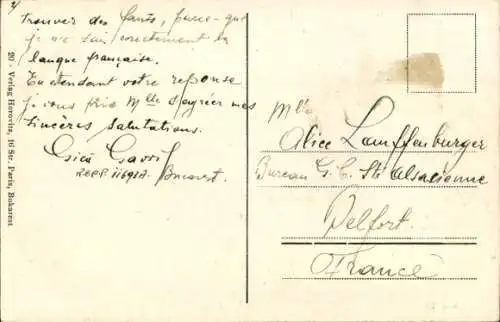 2/
trouver des fauts, parce-que
je ne sais correctement la
langue française.
En attendant votre reponse
je vous prie Mlle d'agréer mes
sincères salutations.
Bucarest.
20 - Verlag Horovitz, 16 Str. Paris, Bukarest
Mlle
Alice Lauffenburger
Bureau G. C. Ste Alsacienne
Belfort.
France